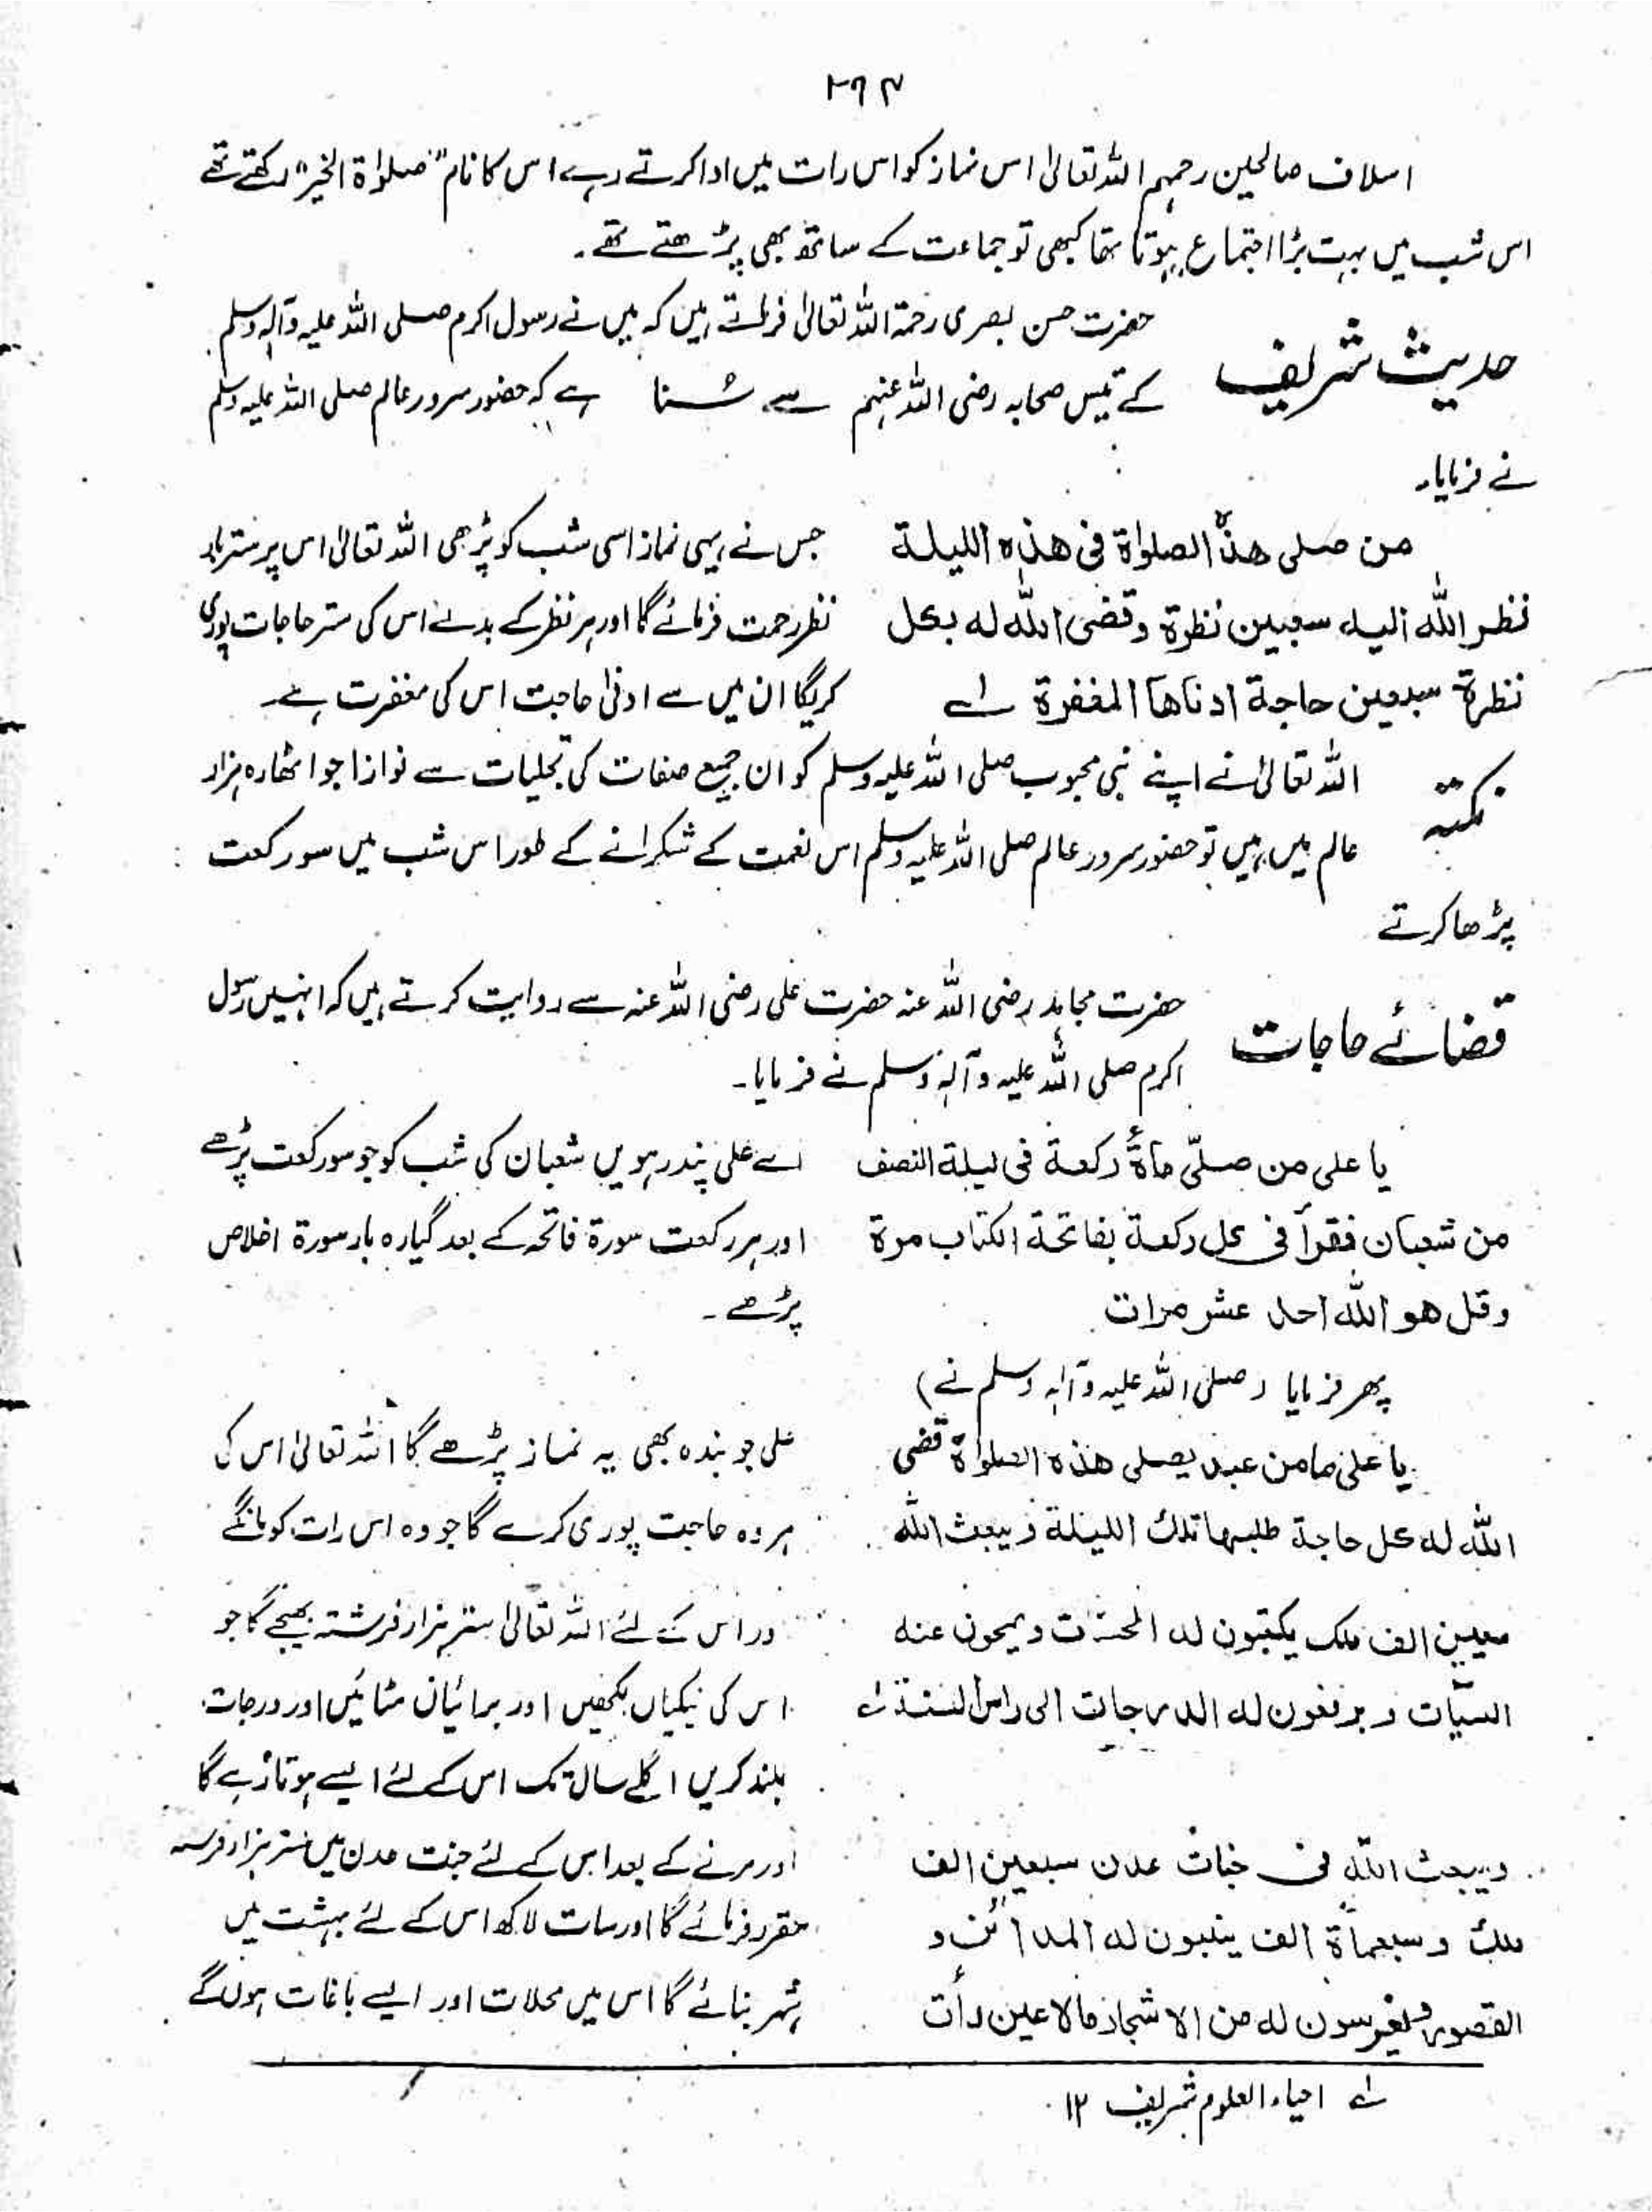 ۲۶۴
اسلاف صالحین رحمہم اللہ تعالیٰ اس نماز کو اس رات میں ادا کرتے رہے اس کا نام "صلوٰۃ الخیر" رکھتے تھے
اس شب میں بہت بڑا اجتماع ہوتا تھا کبھی تو جماعت کے ساتھ بھی پڑھتے تھے۔
حدیث شریف
حضرت حسن بصری رحمۃ اللہ تعالیٰ فرماتے ہیں کہ میں نے رسول اکرم صلی اللہ علیہ وآلہ وسلم
کے تیس صحابہ رضی اللہ عنہم سے سُنا ہے کہ حضور سرور عالم صلی اللہ علیہ وسلم
نے فرمایا۔
من صلی ھذہ الصلوٰۃ فی ھذہ اللیلۃ
نظر اللہ الیہ سبعین نظرۃ وقضی اللہ لہ بکل
نظرۃ سبعین حاجۃ ادناھا المغفرۃ لے
جس نے یہی نماز اسی شب کو پڑھی اللہ تعالیٰ اس پر ستر بار
نظر رحمت فرمائے گا اور ہر نظر کے بدلے اس کی ستر حاجات پوری
کریگا ان میں سے ادنیٰ حاجت اس کی مغفرت ہے۔
نکتہ
اللہ تعالیٰ نے اپنے نبی محبوب صلی اللہ علیہ وسلم کو ان جمیع صفات کی تجلیات سے نوازا جو اٹھارہ ہزار
عالم میں ہیں تو حضور سرور عالم صلی اللہ علیہ وسلم اس نعمت کے شکرانے کے طور اس شب میں سو رکعت
پڑھا کرتے
قضائے حاجات
حضرت مجاہد رضی اللہ عنہ حضرت علی رضی اللہ عنہ سے روایت کرتے ہیں کہ انہیں رسول
اکرم صلی اللہ علیہ وآلہ وسلم نے فرمایا۔
یا علی من صلّی مأۃ رکعۃ فی لیلۃ النصف
من شعبان فقرأ فی کل رکعۃ بفاتحۃ الکتاب مرۃ
وقل ھو اللہ احد عشر مرات
اے علی پندرہویں شعبان کی شب کو جو سو رکعت پڑھے
اور ہر رکعت سورۃ فاتحہ کے بعد گیارہ بار سورۃ اخلاص
پڑھے۔
پھر فرمایا (صلی اللہ علیہ وآلہ وسلم نے)
یا علی ما من عبد یصلی ھذہ الصلوٰۃ قضی
اللہ لہ کل حاجۃ طلبھا تلک اللیلۃ ویبعث اللہ
الف ملک یکتبون لہ الحسنات ویمحون عنہ
السیّات ویرفعون لہ الدرجات الی راس السنۃ
علی جو بندہ بھی یہ نماز پڑھے گا اللہ تعالیٰ اس کی
ہر وہ حاجت پوری کرے گا جو وہ اس رات کو مانگے
ور اس کے لئے اللہ تعالیٰ ستر ہزار فرشتہ بھیجے گا جو
اس کی نیکیاں لکھیں اور برائیاں مٹائیں اور درجات
بلند کریں اگلے سال تک اس کے لئے ایسے ہوتا رہے گا
ویبعث اللہ فی جنات عدن سبعین الف
ملک وسبعمأۃ الف یبنون لہ المدائن و
القصور ویغرسون لہ من الاشجار مالا عین رأت
اور مرنے کے بعد اس کے لئے جنت عدن میں ستر ہزار فرشتہ
مقرر فرمائے گا اور سات لاکھ اس کے لئے بہشت میں
شہر بنائے گا اس میں محلات اور ایسے باغات ہوں گے
لے احیاء العلوم شریف ۱۲